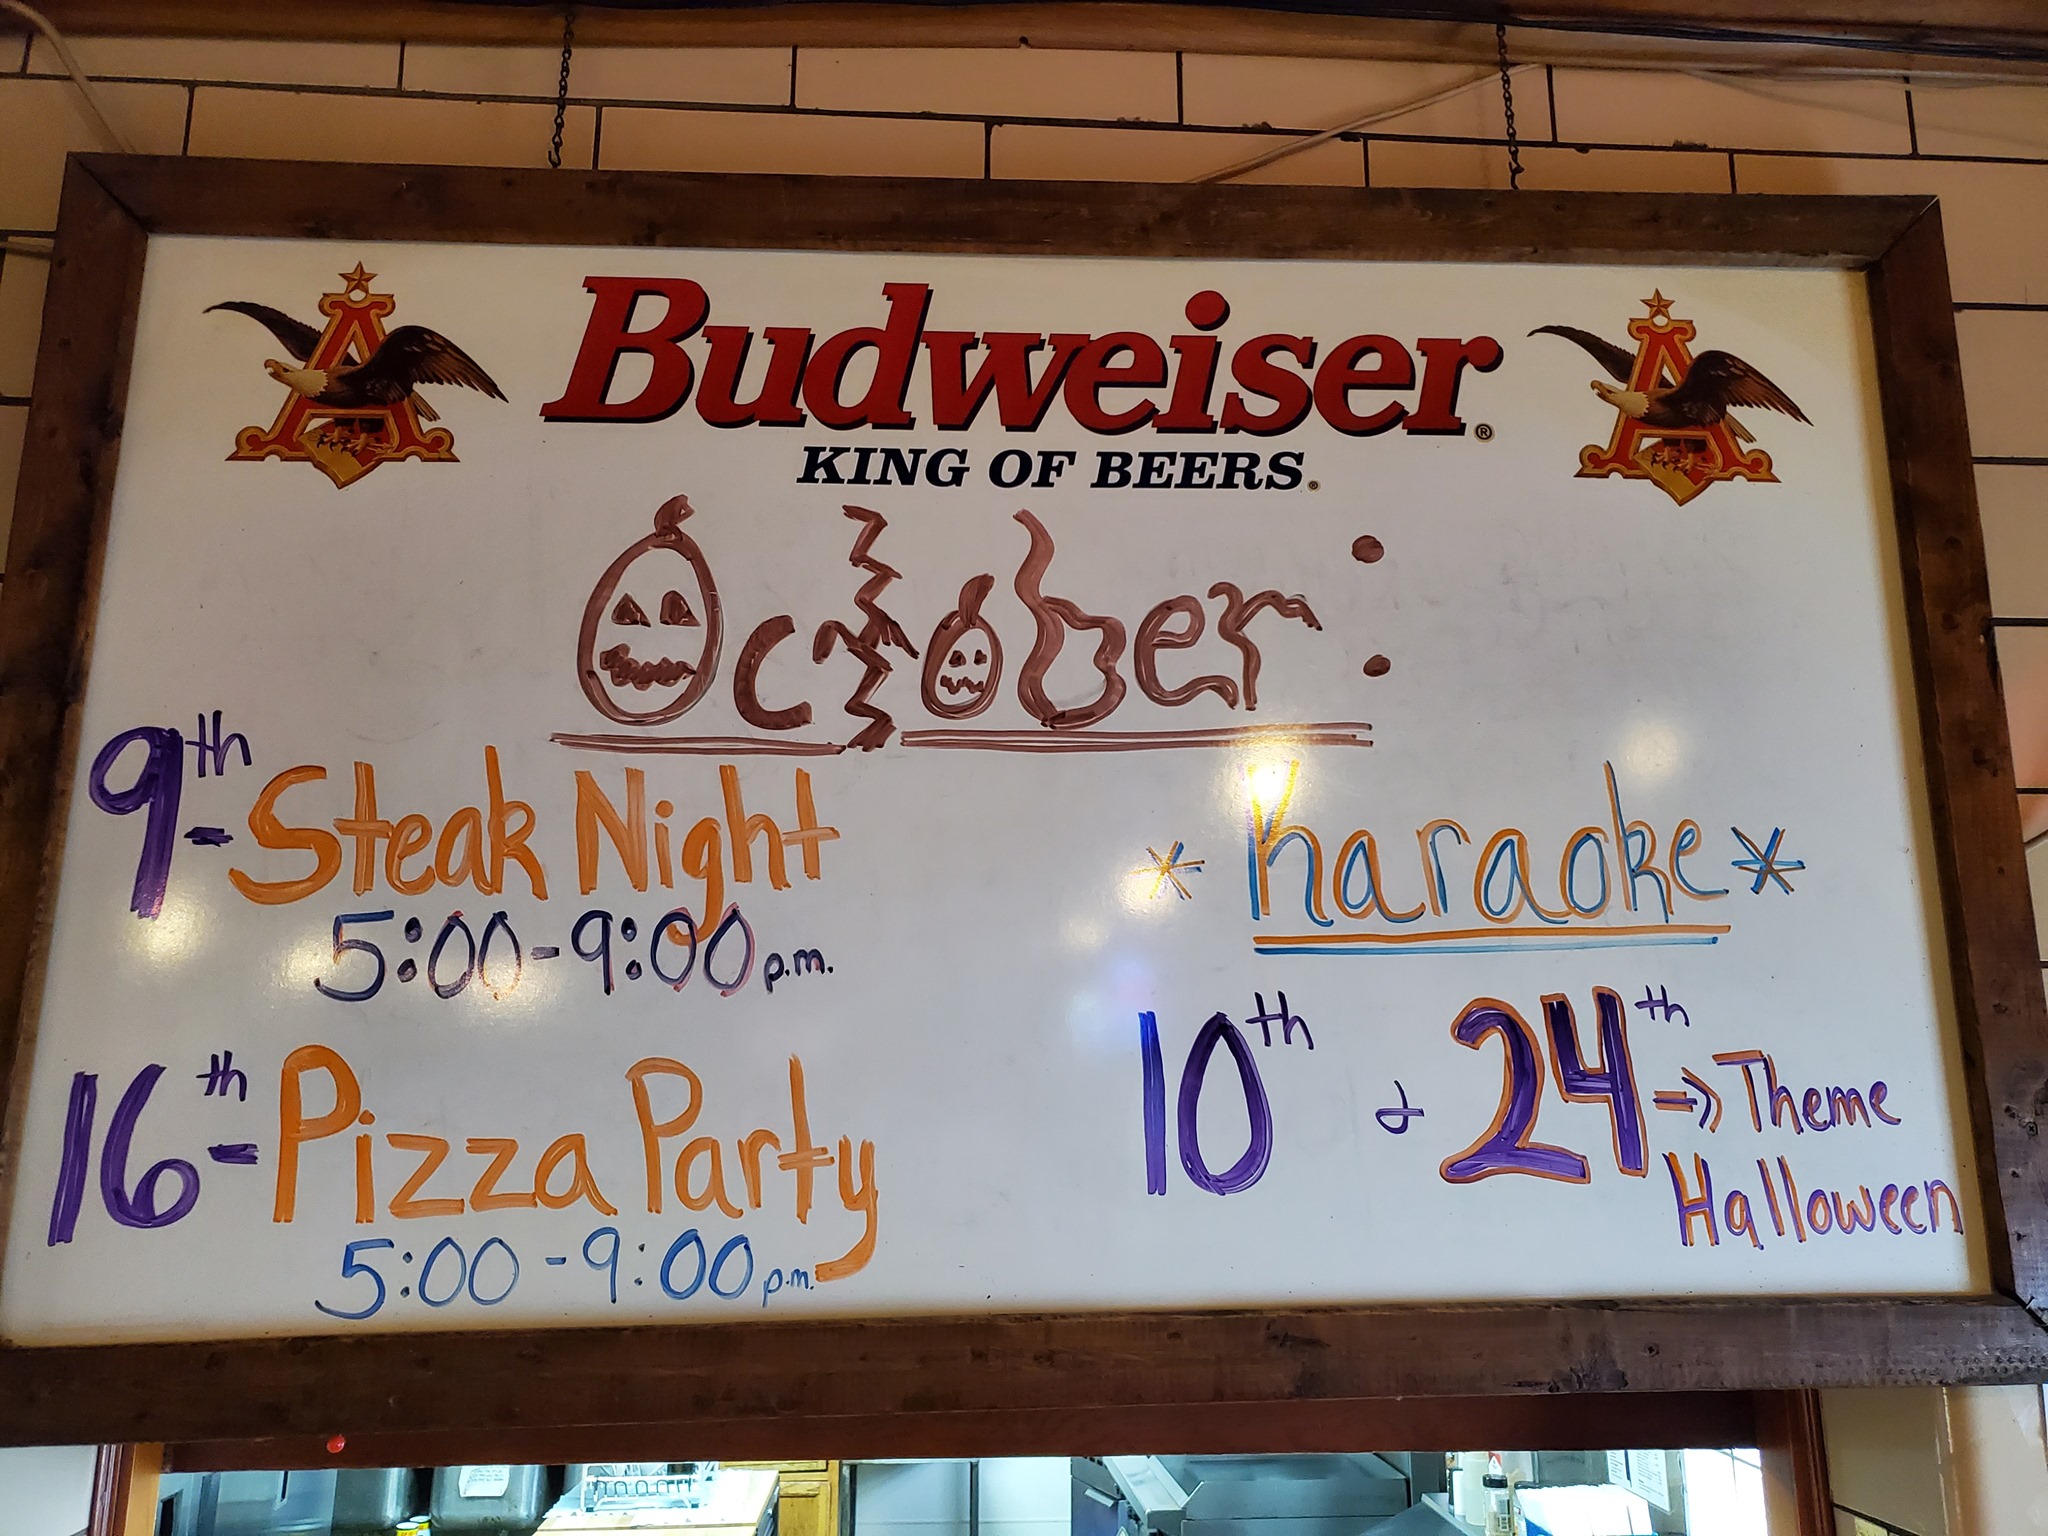 Budweiser®
KING OF BEERS®
October:
9th - Steak Night
5:00-9:00 p.m.
16th - Pizza Party
5:00-9:00 p.m.
* karaoke *
10th & 24th => Theme
Halloween